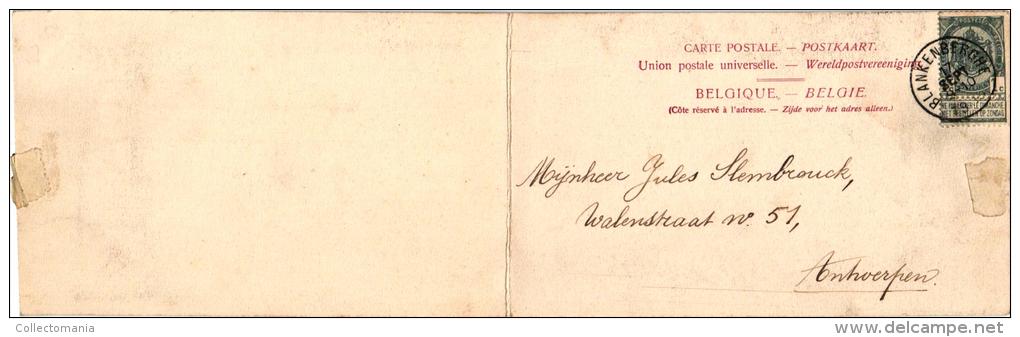 CARTE POSTALE. — POSTKAART.
Union postale universelle. — Wereldpostvereeniging.
BELGIQUE. — BELGIE.
(Côte réservé à l'adresse. — Zijde voor het adres alleen.)
BLANKENBERGHE
NE PAS LIVRER LE DIMANCHE
NIET BESTELLEN OP ZONDAG
Mijnheer Jules Slembrouck,
Walenstraat nº 51,
Antwerpen.
Collectomania
www.delcampe.net